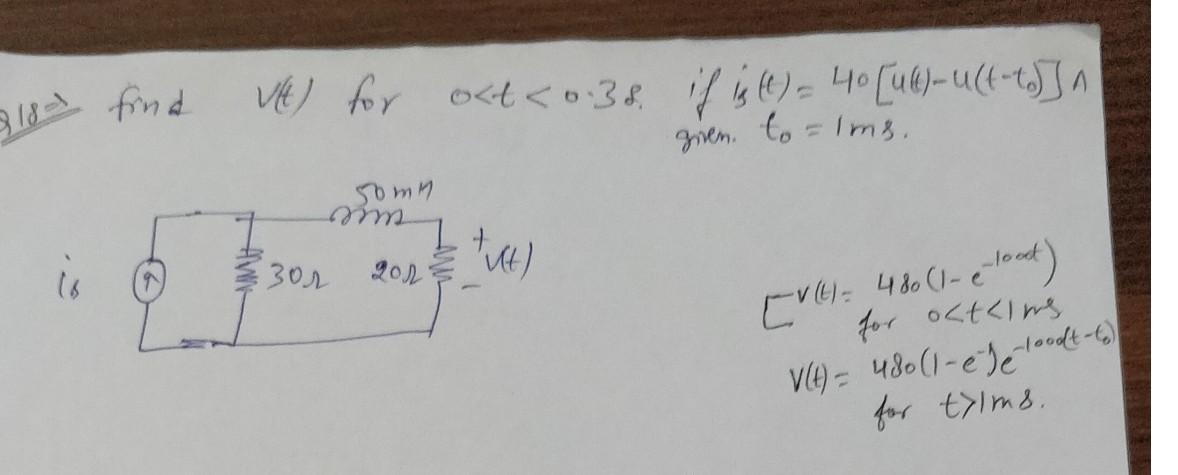 Q18⇒ find v(t) for 0<t<0.3s. if is(t) = 40[u(t)-u(t-t₀)] A
given. t₀ = 1ms.
50mH
is
30Ω
20Ω
+
v(t)
-
[v(t) = 480(1-e^-1000t)
for 0<t<1ms
v(t) = 480(1-e^-1)e^-1000(t-t₀)
for t>1ms.